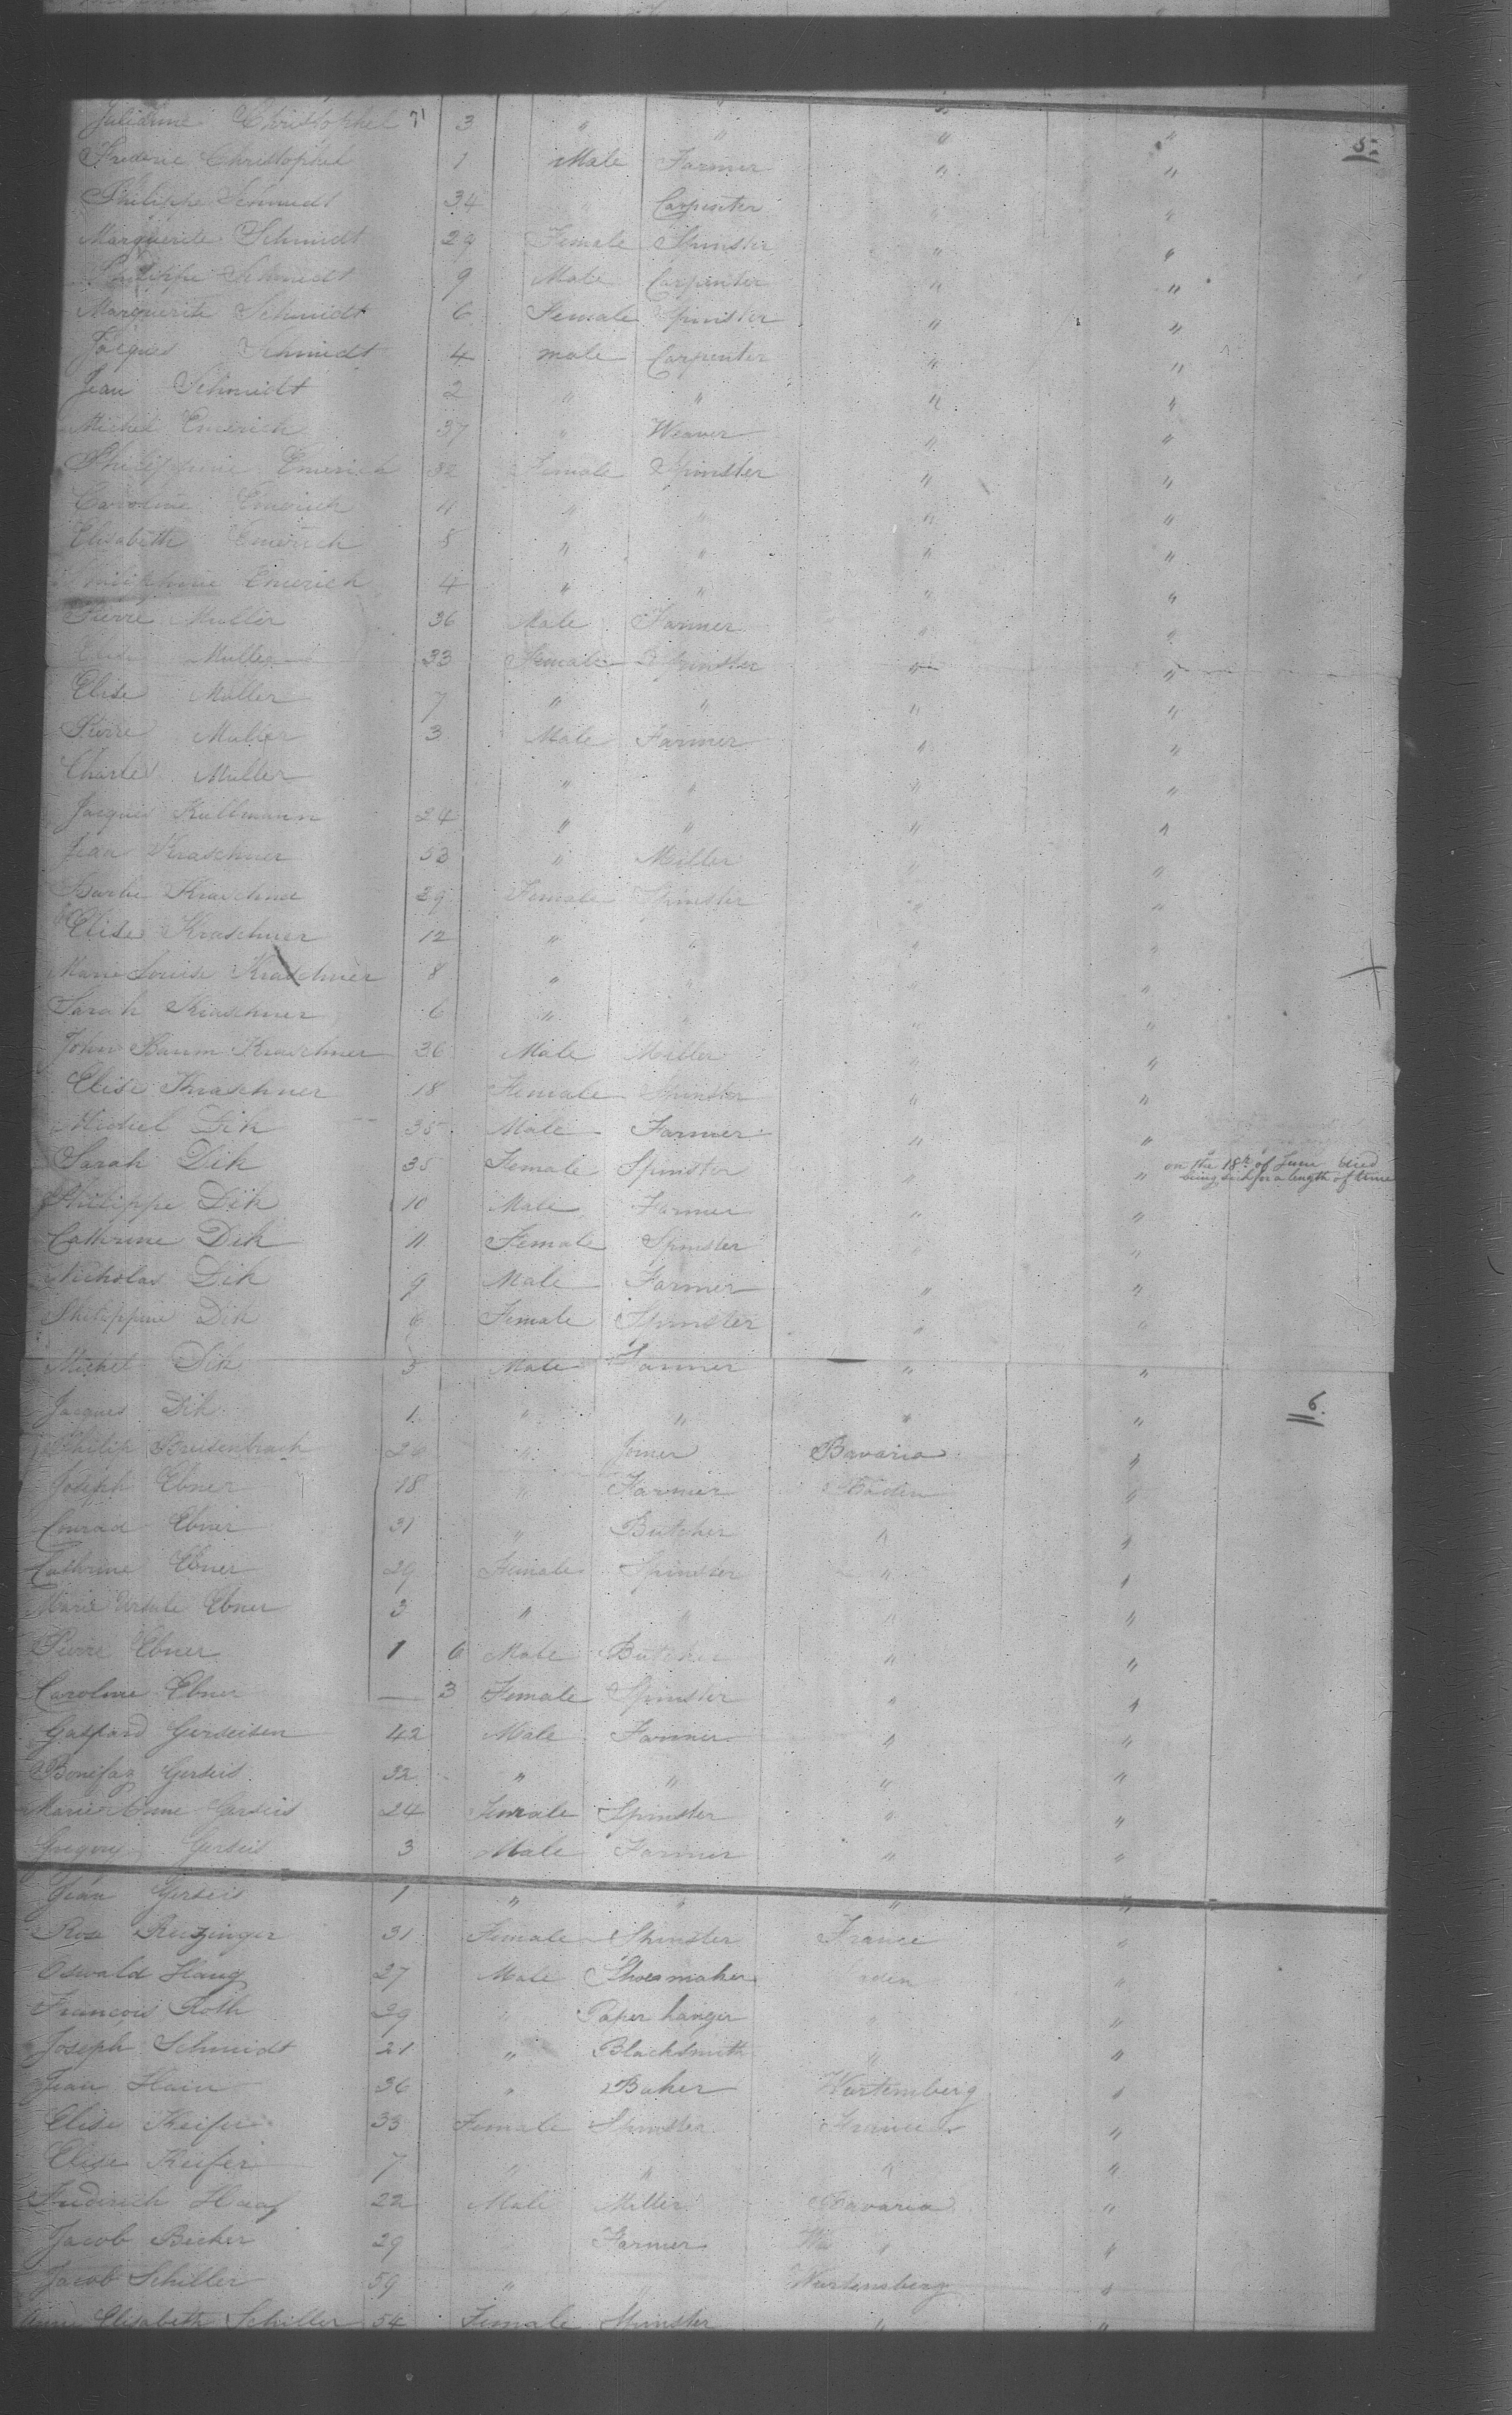 Christophel 71 3 " " " "
Frederic Christophel 1 Male Farmer " " 5.
Philippe Schmidt 34 " Carpenter " "
Marguerite Schmidt 29 Female Spinster " "
Philippe Schmidt 9 Male Carpenter " "
Marguerite Schmidt 6 Female Spinster " "
Jacques Schmidt 4 male Carpenter " "
Jean Schmidt 2 " " " "
Michel Emerich 37 " Weaver " "
Philippine Emerich 32 Female Spinster " "
Caroline Emerich 11 " " " "
Elisabeth Emerich 8 " " " "
Philippine Emerich 4 " " " "
Pierre Muller 36 Male Farmer " "
Muller 33 Female Spinster " "
Elise Muller 7 " " " "
Pierre Muller 3 Male Farmer " "
Charles Muller " " " "
Jacques Kullmann 24 " " " "
Jean Kraschner 53 " Muller " "
Barbe Kraschner 39 Female Spinster " "
Elise Kraschner 12 " " " "
Marie Louise Kraschner 8 " " " "
Sarah Kraschner 6 " " " "
John Kraschner 36 Male Miller " "
Elise Kraschner 18 Female Spinster " "
Michel Dik 35 Male Farmer " "
Sarah Dik 35 Female Spinster " " on the 18th of June died
being sick for a length of time
Philippe Dik 10 Male Farmer " "
Cathrine Dik 11 Female Spinster " "
Nicholas Dik 9 Male Farmer " "
Philippine Dik 6 Female Spinster " "
Michel Dik 3 Male Farmer " "
Jacques Dik 1 " " " " 6.
Philip 26 " Joiner Bavaria "
Joseph Ebner 18 " Farmer Baden "
Conrad Ebner 31 " Butcher " "
Cathrine Ebner 29 Female Spinster " "
Marie Ursule Ebner 3 " " " "
Pierre Ebner 1 6 Male Butcher " "
Caroline Ebner — 3 Female Spinster " "
Gaspard Gerseisen 42 Male Farmer " "
Bonifaz Gerseis 32 " " " "
Marie Anne Gerseis 24 Female Spinster " "
Gregory Gerseis 3 Male Farmer " "
Jean Gerseis 1 " " " "
Rose Reutzinger 31 Female Spinster France "
Oswald Haug 27 Male Shoemaker Baden "
François Roth 29 " Paper hanger " "
Joseph Schmidt 21 " Blacksmith " "
Jean Hain 36 " Baker Wurtemberg "
Elise Keifer 33 Female Spinster France "
Elise Keifer 7 " " " "
Friderich Haaf 22 Male Miller Bavaria "
Jacob Becker 29 Farmer Wu " "
Jacob Schiller 59 " " Wurtemberg "
Anne Elisabeth Schiller 54 Female Spinster " "